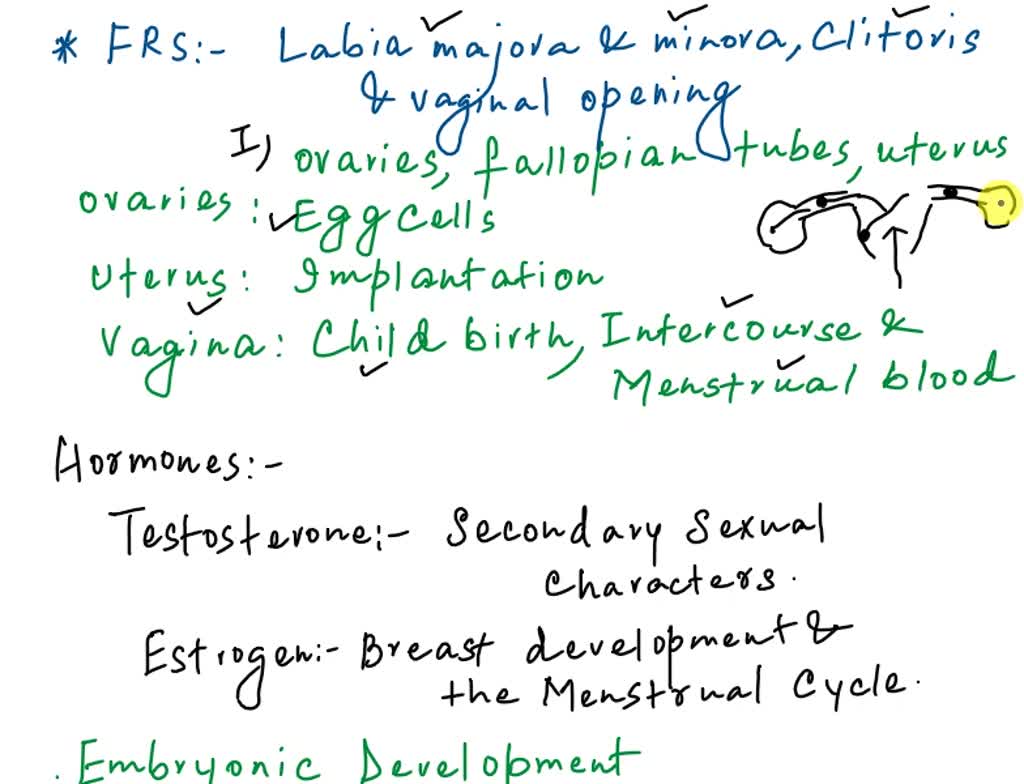 * FRS:- Labia majora & minora, Clitoris
& vaginal opening
I) ovaries, fallopian tubes, uterus
ovaries: Egg cells
Uterus: Implantation
Vagina: Child birth, Intercourse &
Menstrual blood
Hormones:-
Testosterone:- Secondary Sexual
Characters.
Estrogen:- Breast development &
the Menstrual Cycle.
. Embryonic Development